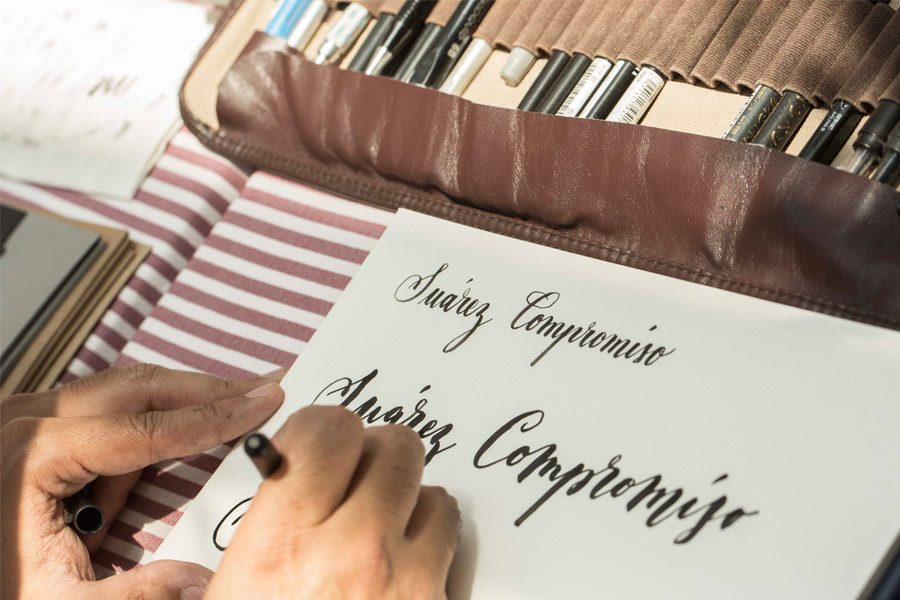 Suárez Compromiso
Suárez Compromiso